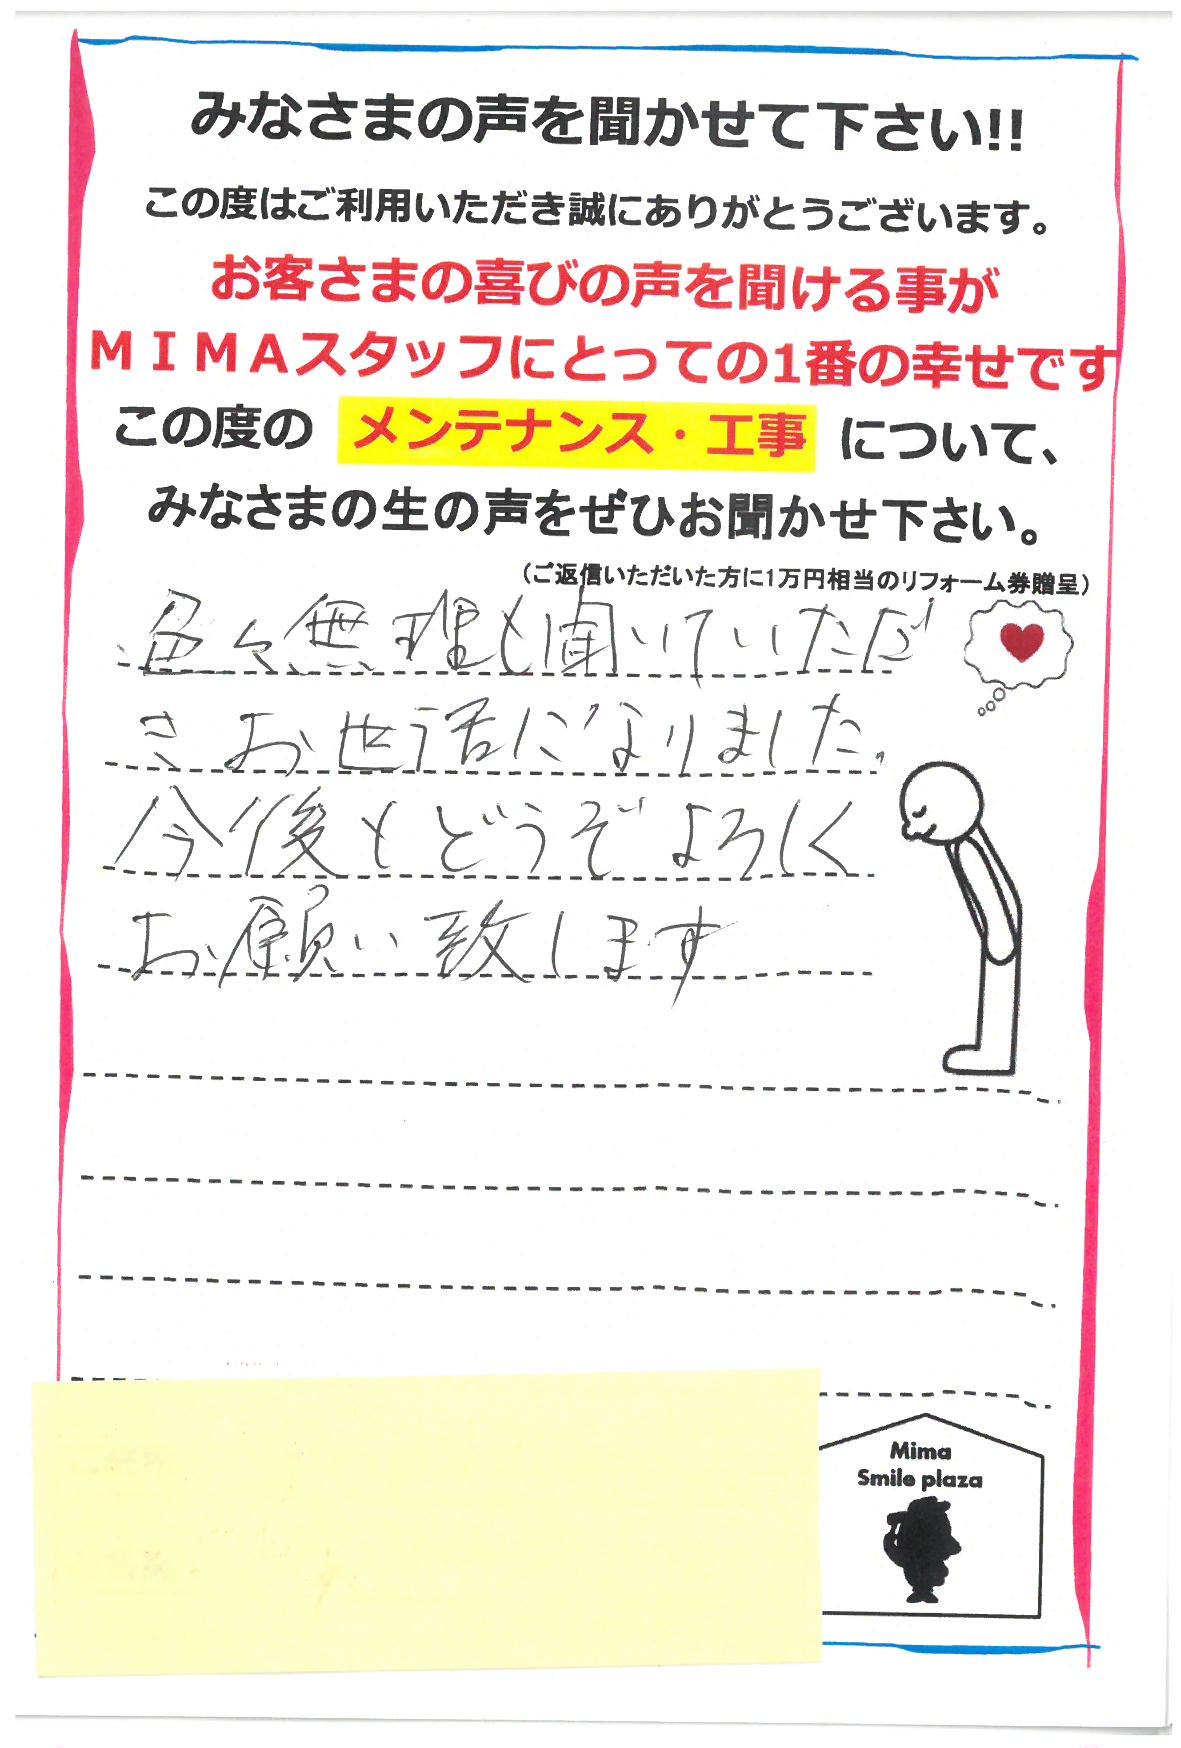 みなさまの声を聞かせて下さい!!
この度はご利用いただき誠にありがとうございます。
お客さまの喜びの声を聞ける事が
ＭＩＭＡスタッフにとっての1番の幸せです
この度の メンテナンス・工事 について、
みなさまの生の声をぜひお聞かせ下さい。
（ご返信いただいた方に1万円相当のリフォーム券贈呈）
色々無理も聞いていただ
きお世話になりました。
今後もどうぞよろしく
お願い致します
Mima
Smile plaza